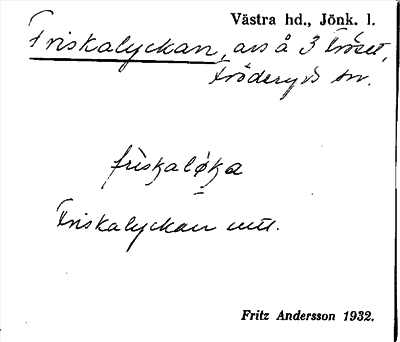 Västra hd., Jönk. l.
Friskalyckan, avs å 3 Fröset,
Fröderyds sn.
friskaløka
Friskalyckan utt.
Fritz Andersson 1932.